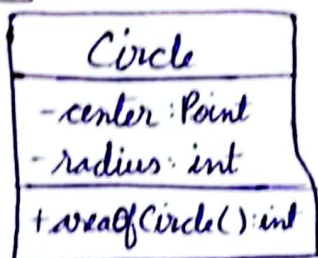 Circle
-center:Point
-radius:int
+areaOfCircle():int